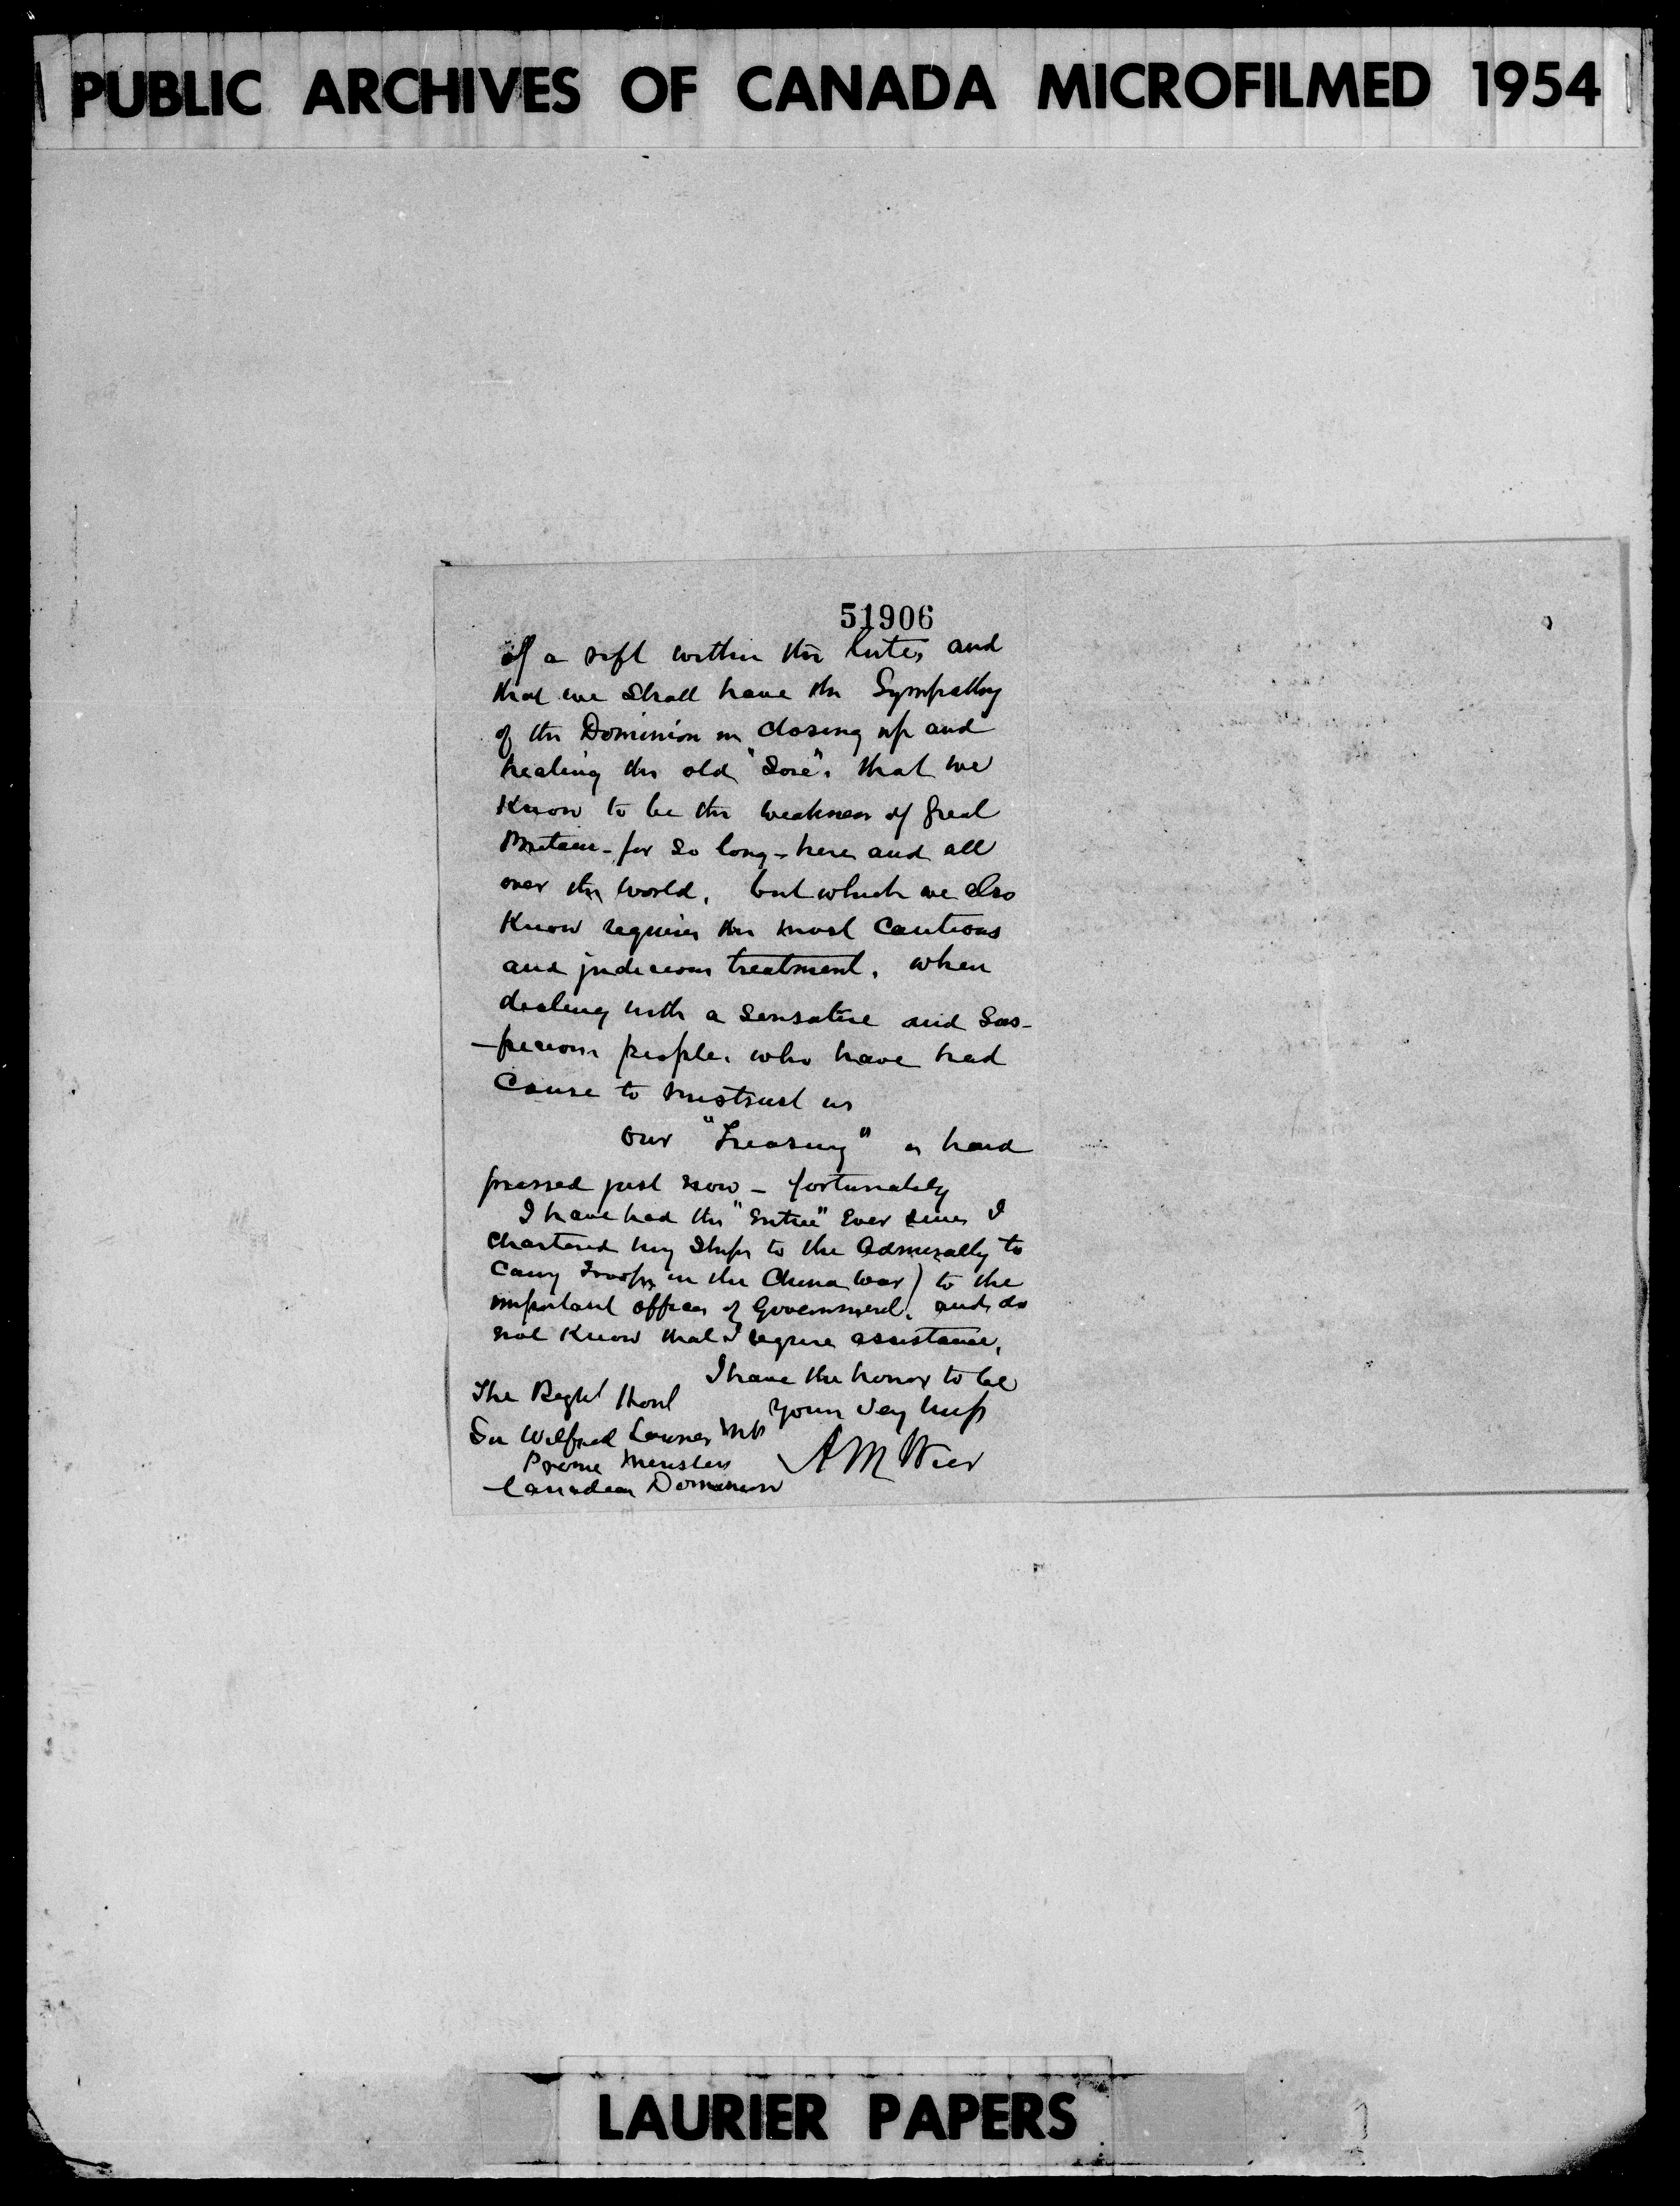 PUBLIC ARCHIVES OF CANADA MICROFILMED 1954
51906
of a rift within the lute, and
that we shall have the Sympathy
of the Dominion in closing up and
healing the old "Sore", that we
Know to be the weakness of Great
Britain - for so long - here and all
over the world, but which we also
Know requires the most Cautious
and judicious treatment, when
dealing with a Sensative and Sus-
-picious people, who have had
Cause to mistrust us
Our "Treasury" is hard
pressed just now - fortunately
I have had the "Entree" Ever since I
Chartered my Ships to the Admiralty to
Carry Troops in the China War) to the
important offices of Government, and do
not Know that I require assistance,
I have the honor to be
The Right Honl
Yours Very
Sir Wilfred Laurier
Prime Minister
A M Weir
Canadian Dominion
LAURIER PAPERS